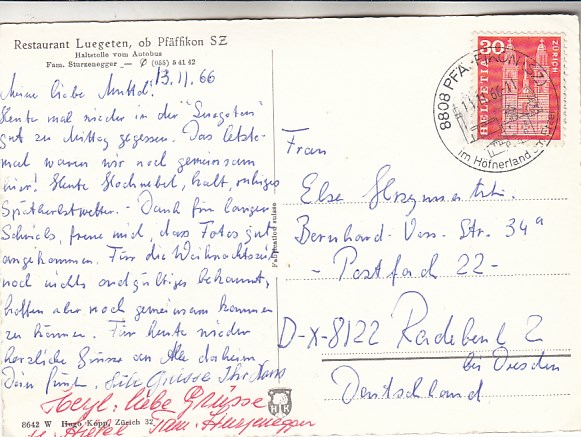 Restaurant Luegeten, ob Pfäffikon SZ
Haltstelle vom Autobus
Fam. Sturzenegger — ✆ (055) 5 41 42
13.11.66
Meine liebe Mutti!
Heute mal wieder in der "Luegeten"
gut zu Mittag gegessen. Das letzte-
mal waren wir noch gemeinsam
hier! Heute Hochnebel, kalt, ruhiges
Spätherbstwetter. - Dank für langen
Schrieb, freue mich, dass Fotos gut
angekommen. Für die Weihnachtszeit
noch nichts endgültiges bekannt,
hoffen aber noch gemeinsam kommen
zu können. Für heute wieder
herzliche Grüsse an Alle daheim
Dein
Grüsse Ihr
Herzl. liebe Grüsse
Fam. Sturzenegger
8642 W Hugo Kopp, Zürich 32
Fotopostkod suisse
30
HELVETIA
ZÜRICH
8808 PFÄFFIKON (SZ)
im Höfnerland
Frau
Else
Bernhard-Voss-Str. 34a
- Postfach 22 -
D-X-8122 Radebeul 2
bei Dresden
Deutschland